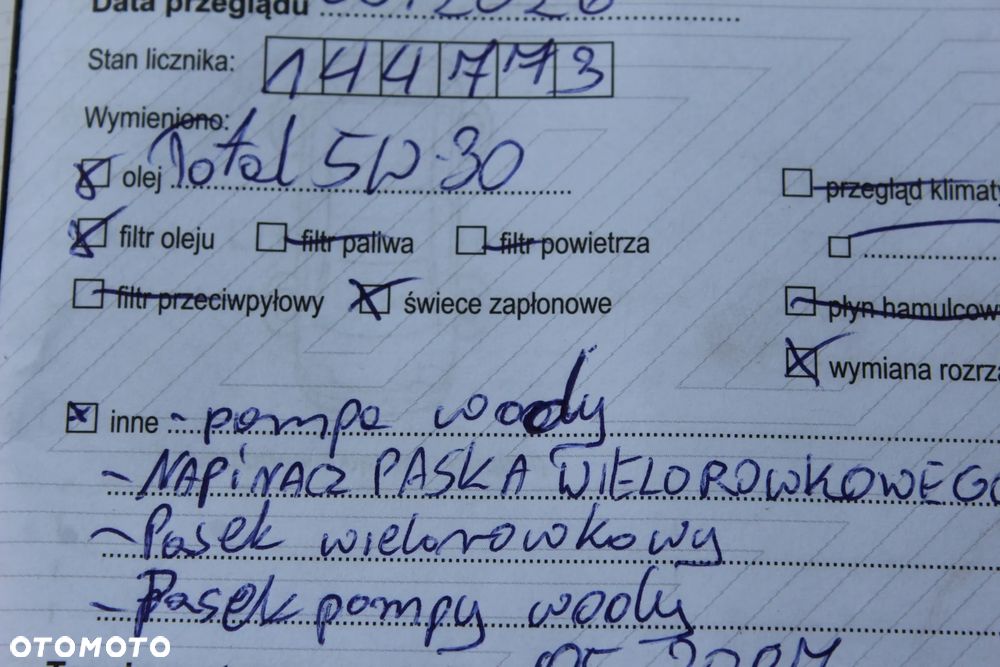 Data przeglądu
Stan licznika: 144773
Wymieniono:
olej Total 5W-30
przegląd klimaty
filtr oleju filtr paliwa filtr powietrza
filtr przeciwpyłowy świece zapłonowe
płyn hamulcow
wymiana rozrzą
inne - pompa wody
- NAPINACZ PASKA WIELOROWKOWEGO
- Pasek wielorowkowy
- Pasek pompy wody
OTOMOTO